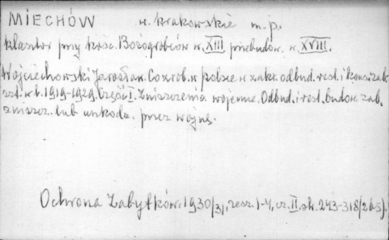 MIECHÓW w. krakowskie m. p.
Klasztor przy kośc. Bożogrobców w. XIII przebudow. w XVIII.
Wojciechowski Jarosław. Co zrob. w Polsce w zakr. odbud. rest. i konserw. zab.
szt. w l. 1919-1929. Część I. Zniszczenia wojenne. Odbud. i rest. budow. zab.
zniszcz. lub uszkodz. przez wojnę.
Ochrona Zabytków. 1930/31, zesz. 1-4, cz. II, str. 243-318